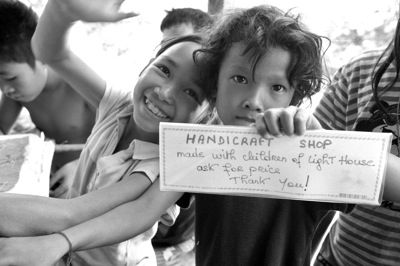 HANDICRAFT SHOP
made with children of light House
ask for price
Thank you!